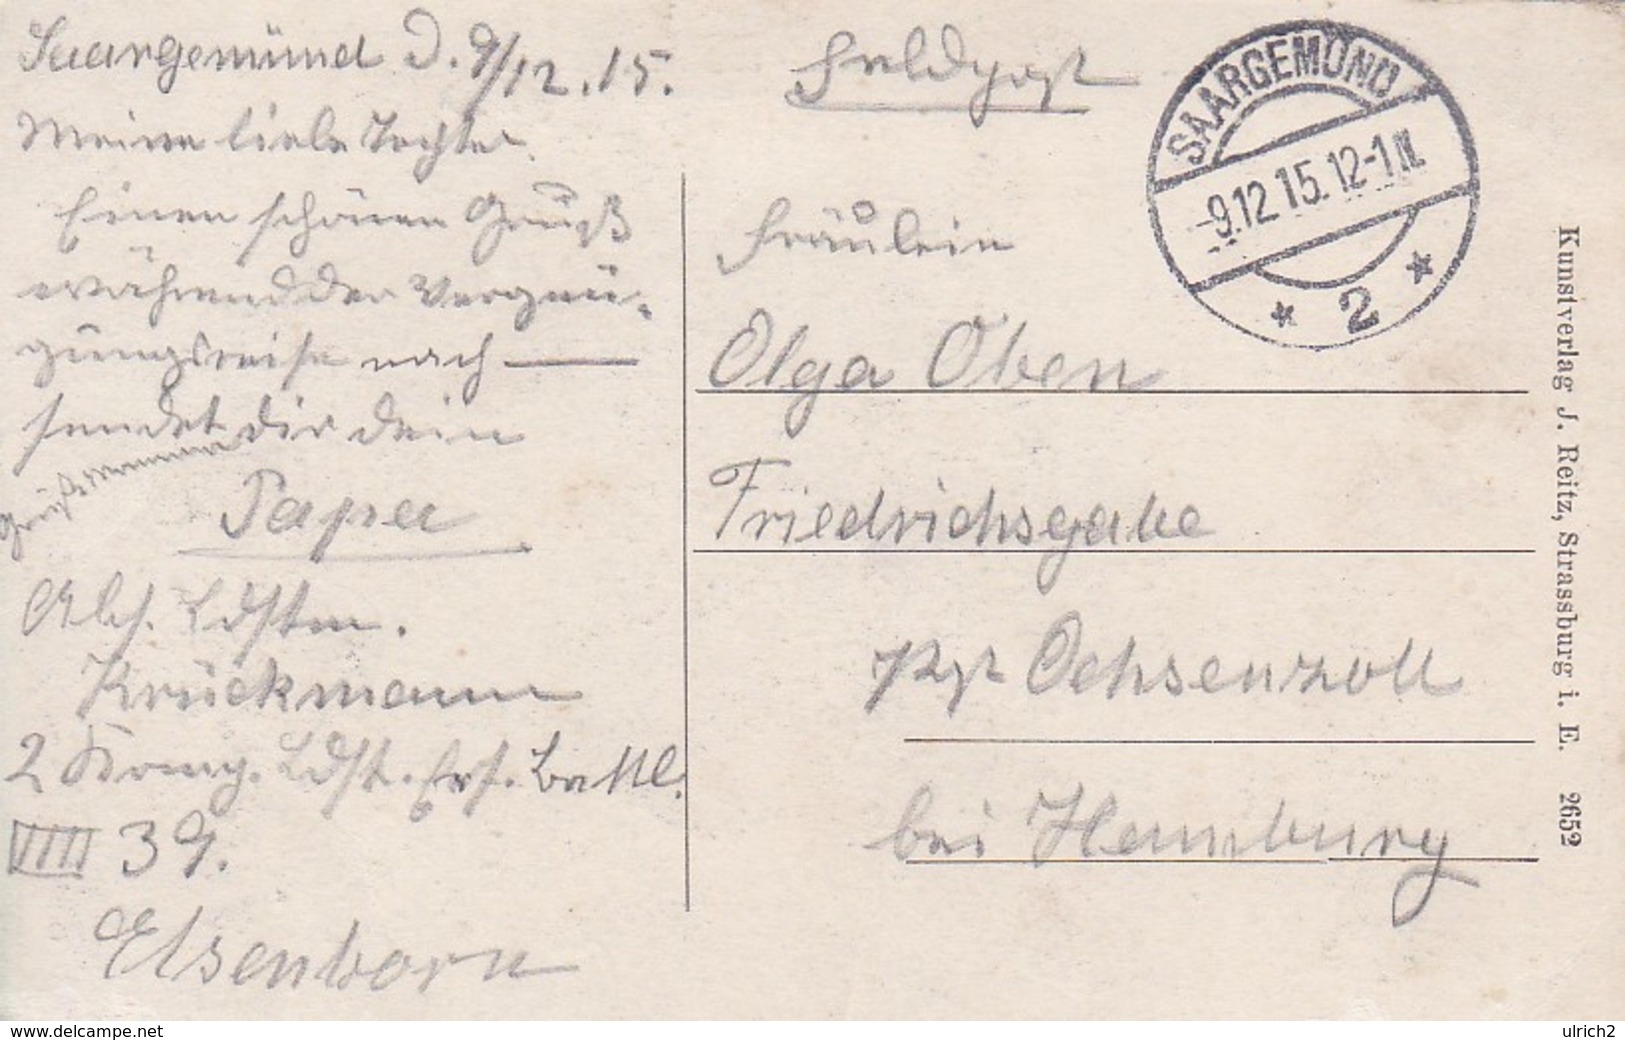 Saargemünd d. 9/12.15.
Meine liebe Tochter.
Einen schönen Gruß
während der Vergnü-
gungsreise nach ——
sendet dir dein
Papa
Abs. Ldstm.
Krückmann
2 Komp. Ldst. Ers. Batl.
VIIII 39.
Elsenborn
Feldpost
SAARGEMÜND
-9.12.15.12-1N.
* 2 *
Fräulein
Olga Oben
Friedrichsgabe
Ochsenzoll
bei Hamburg
Kunstverlag J. Reitz, Strassburg i. E. 2652
www.delcampe.net
ulrich2